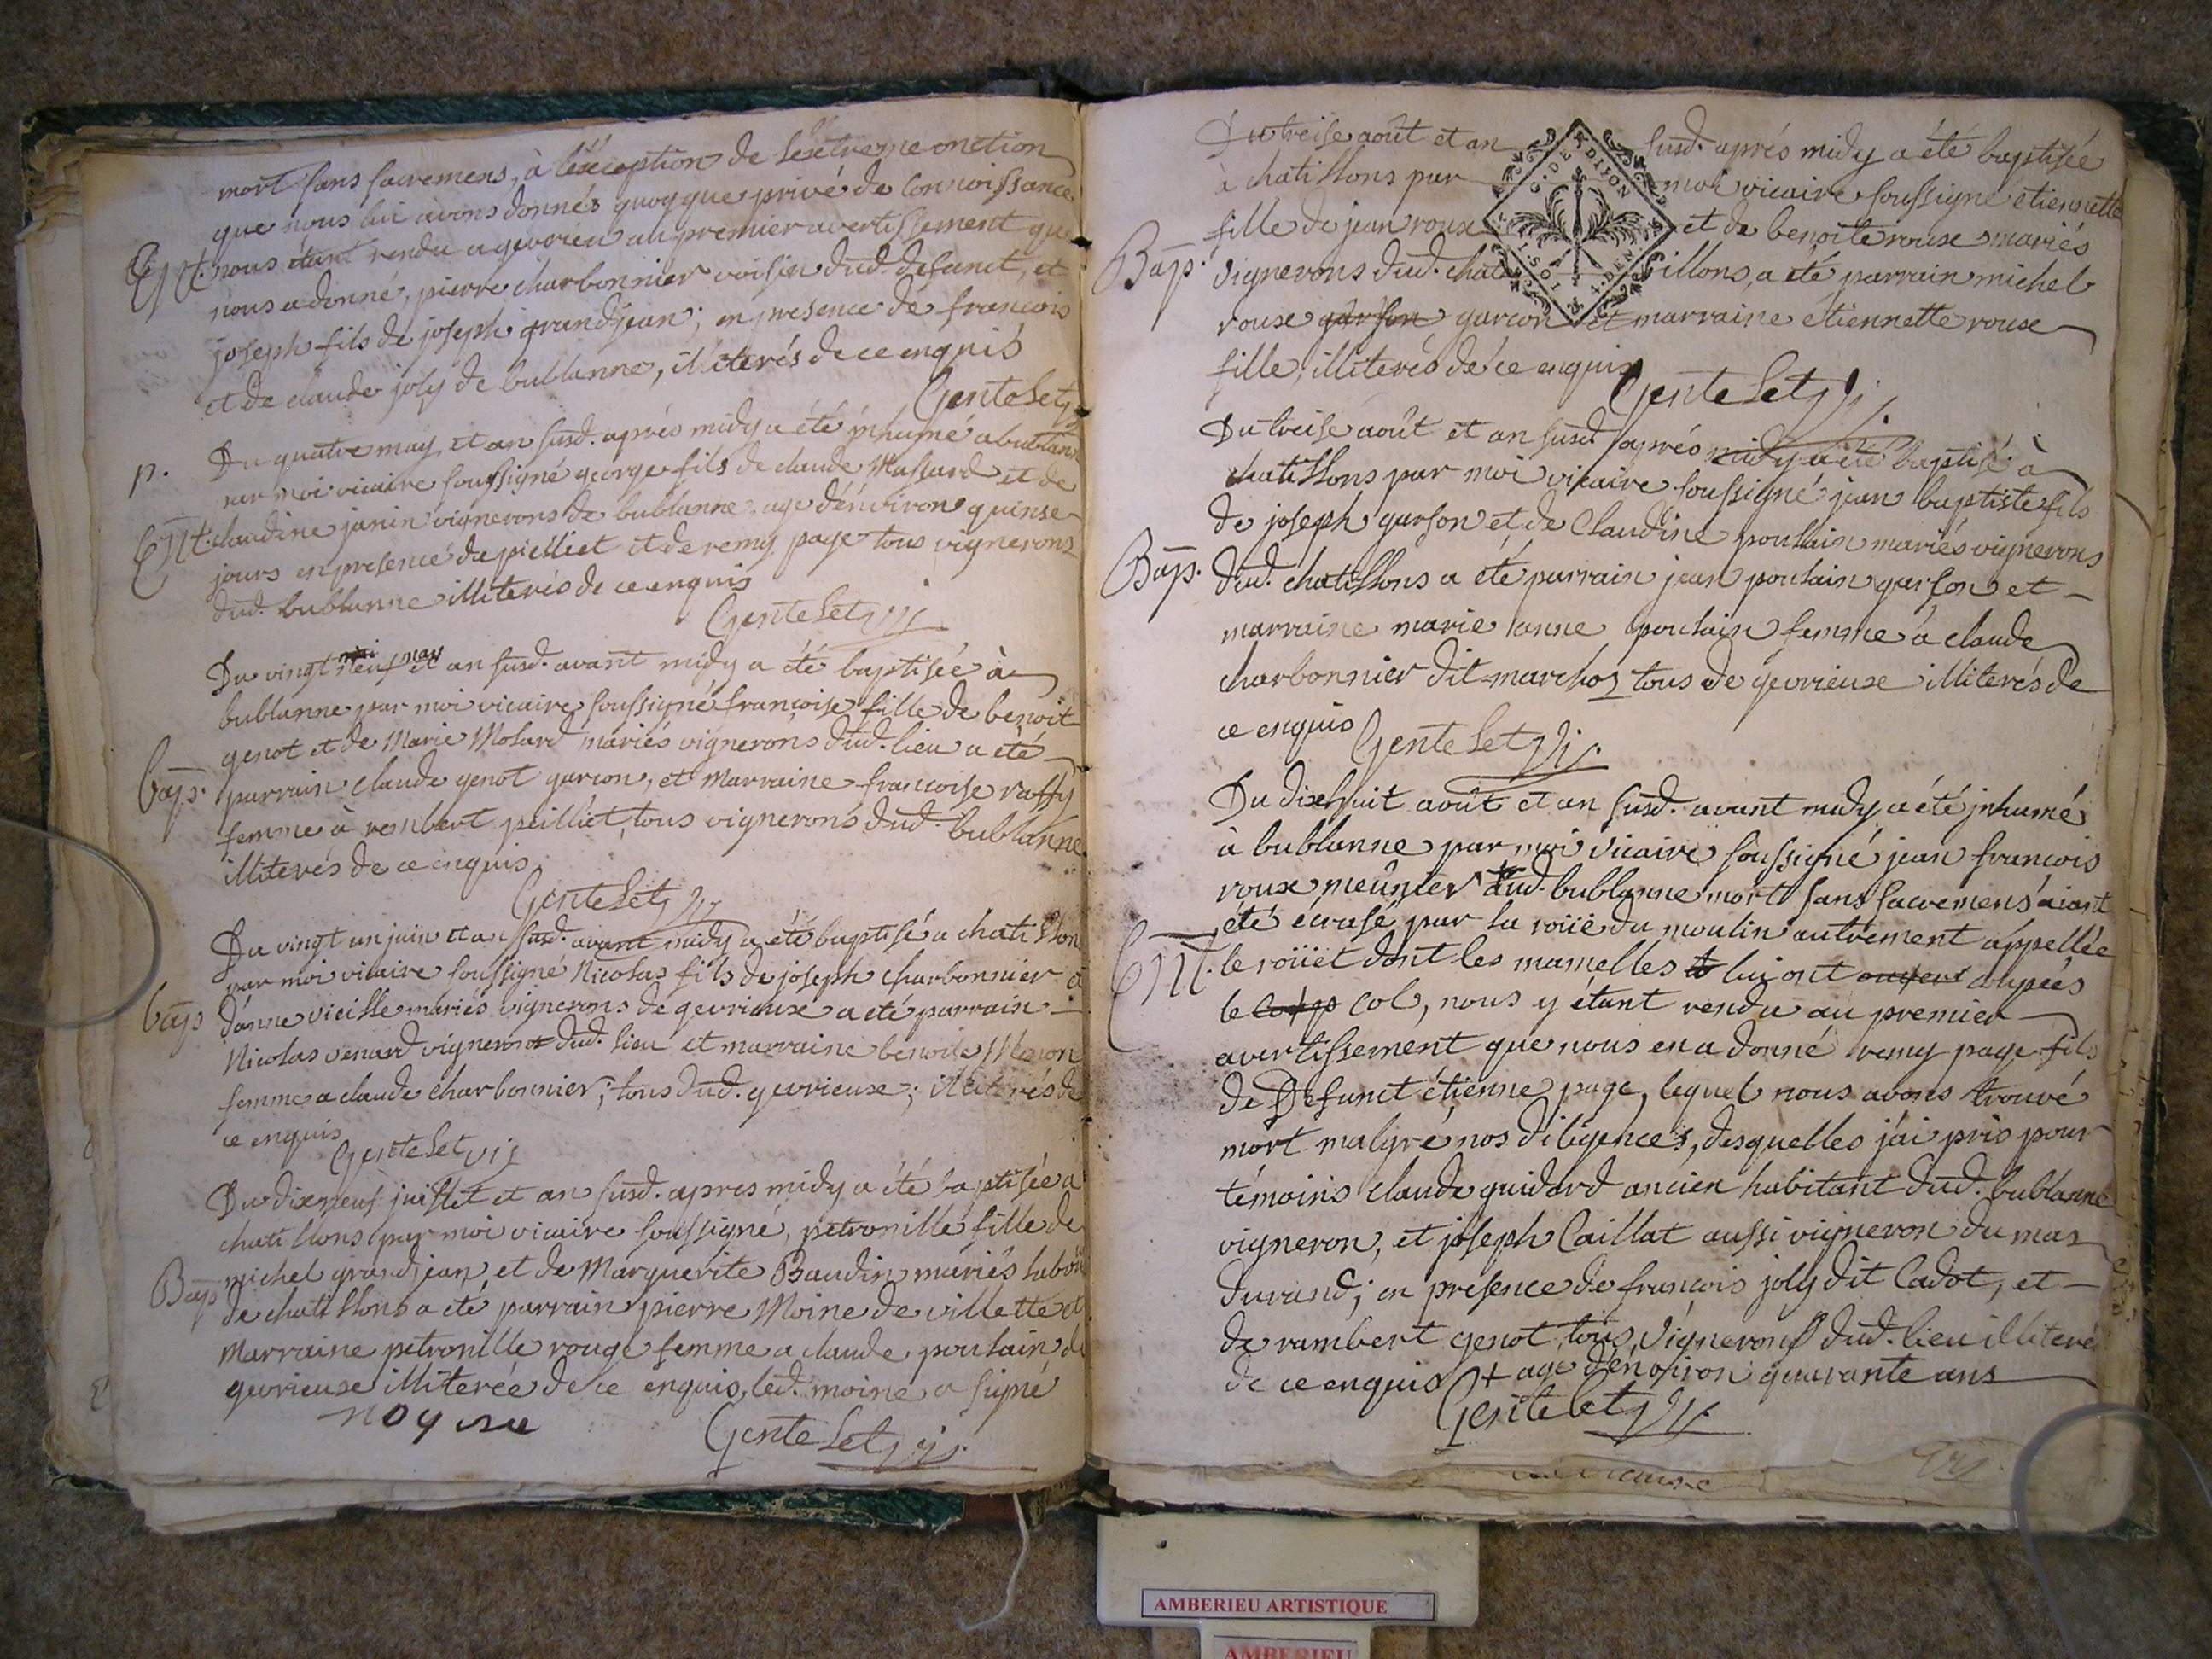 mort sans sacremens, à l'éxception de l'extreme onction
que nous lui avons donnés quoyque privé de connoissance
Ent. nous étant rendu a gevrieu au premier avertissement que
nous a donné, pierre charbonnier voisin dud. defunct, et
joseph fils de joseph grandjean; en presence de francois
et de claude joly de bublanne, illiterés de ce enquis
Gentelet
p. Du quatre may et an susd. aprés midy a été inhumé a bublane
par moi vicaire soussigné george fils de claude Massard et de
Ent. claudine janin vignerons de bublanne agé d'environ quinse
jours en presence de peilliet et de remy page tous vignerons
dud. bublanne illiterés de ce enquis
Gentelet vic
Du vingt neuf may et an susd. avant midy a été baptisée à
bublanne par moi vicaire soussigné françoise fille de benoit
genot et de Marie Molard mariés vignerons dud. lieu a été
bap. parrain claude genot garcon, et Marraine francoise raffy
femme à rembert peilliet, tous vignerons dud. bublanne
illiterés de ce enquis
Gentelet vic
Du vingt un juin et an susd. avant midy a été baptisé a chatillon
par moi vicaire soussigné Nicolas fils de joseph charbonnier &
bap d'anne vieille mariés vignerons de gevrieux a eté parrain
Nicolas venard vigneron dud. lieu et marraine benoite Monon
femme a claude charbonnier; tous dud. gevrieux; illiterés de
ce enquis
Gentelet vic
Du dixneuf juillet et an susd. apres midy a été baptisée a
chatillons par moi vicaire soussigné, petronille fille de
Bap michel grandjean et de Marguerite Baudin mariés labou
de chatillons a eté parrain pierre Moine de villette et
Marraine petronille rouge femme a claude poulain de
gevrieux illiterée de ce enquis, led. moine a signé
moyne Gentelet vic.
Du treise août et an susd. aprés midy a été baptisée
à chatillons par moi vicaire soussigné etiennette
fille de jean roux et de benoite roux mariés
Bap. vignerons dud. chatillons, a eté parrain michel
roux garson garcon et marraine étiennette roux
fille, illiterés de ce enquis
G. DE DIJON
1 SOL 4. DEN
Gentelet vic.
Du treise août et an susd. aprés midy a été baptisé à
chatillons par moi vicaire soussigné jean baptiste fils
de joseph garson et de Claudine poulain mariés vignerons
Bap. dud. chatillons a été parrain jean poulain garson et
marraine marie anne poulain femme à claude
charbonnier dit marchoz tous de gevrieux illiterés de
ce enquis
Gentelet vic.
Du dixhuit août et an susd. avant midy a été jnhumé
à bublanne par moi vicaire soussigné jean francois
roux meûnier + dud. bublanne mort sans sacremens aiant
été écrasé par la roüe du moulin autrement appellée
Ent. le roüet dont les mamelles lui ont coupées
le corps col, nous y étant rendu au premier
avertissement que nous en a donné remy page fils
de Defunct étienne page, lequel nous avons trouvé
mort malgré nos diligences, desquelles j'ai pris pour
témoins claude guidard ancien habitant dud. bublanne
vigneron, et joseph Caillat aussi vigneron du mas
durand; en présence de francois joly dit Cadot, et
de rambert genot, tous vignerons dud. lieu illiteré
de ce enquis + agé d'environ quarante ans
Gentelet vic.
AMBERIEU ARTISTIQUE
AMBERIEU